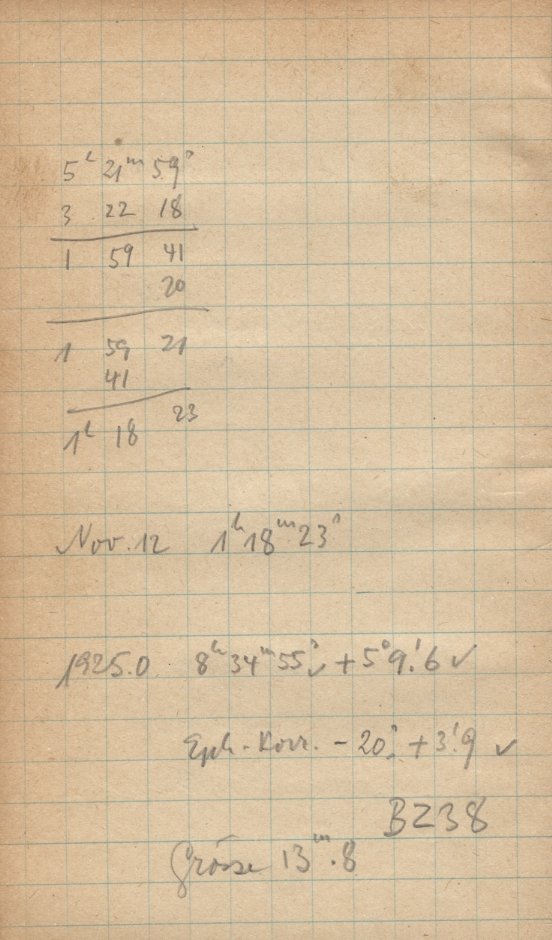 5ʰ 21ᵐ 59ˢ
3 22 18
1 59 41
20
1 59 21
41
1ʰ 18 23
Nov. 12 1ʰ 18ᵐ 23ˢ
1925.0 8ʰ 34ᵐ 55ˢ ✓ + 5° 9'.6 ✓
Eph.-Korr. - 20ˢ, + 3'.9 ✓
BZ38
Grösse 13ᵐ.8